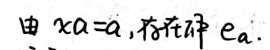 由 xa=a, 存在解 eₐ.